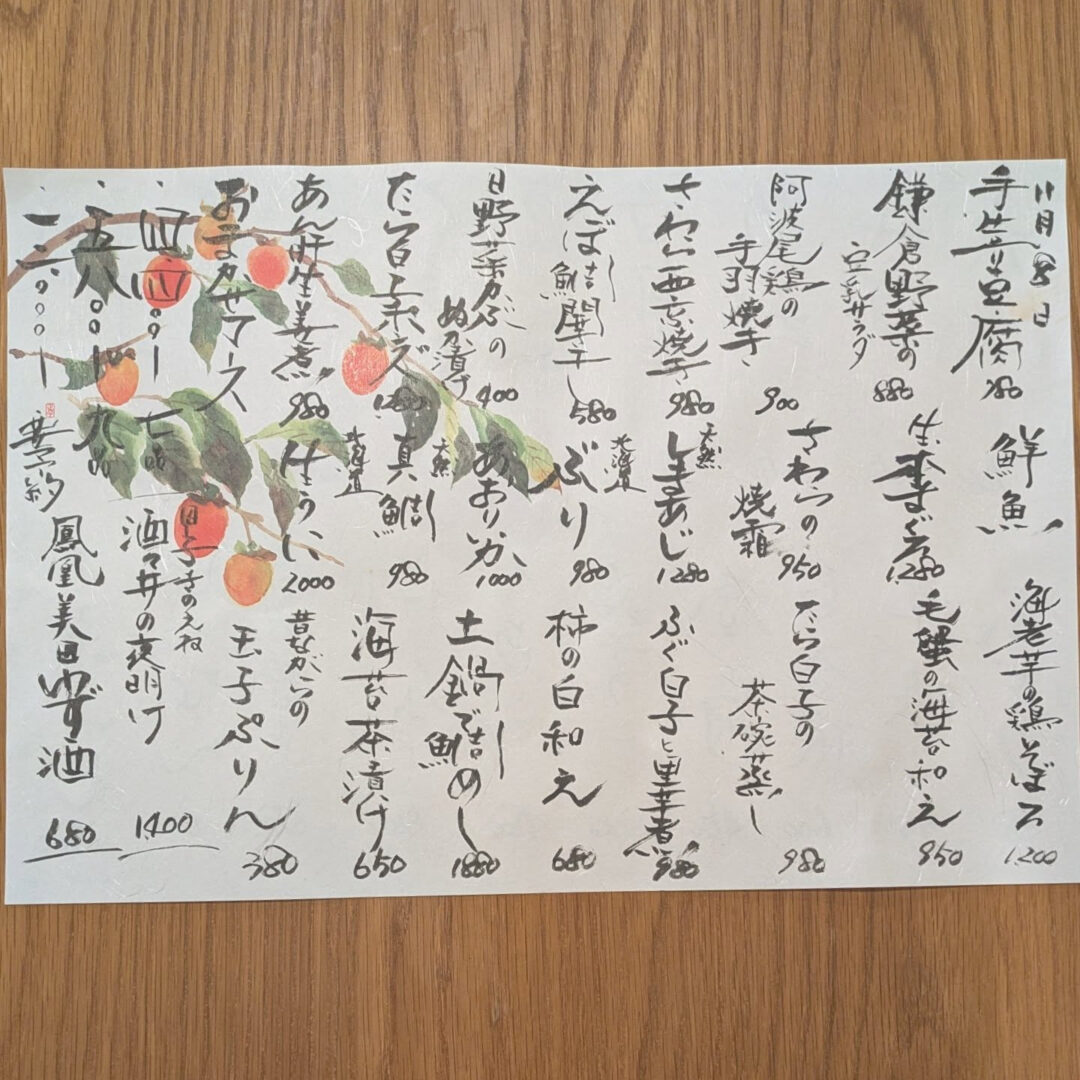 11月8日
手造り豆腐 780
鎌倉野菜の
豆乳サラダ 880
阿波尾鶏の
手羽焼き 900
さわら西京焼き 980
えぼ鯛開干し 580
日野菜かぶの
ぬか漬け 400
たら白子ポン
あん肝生姜煮 980
おまかせコース
・四四〇〇ー 七品
・五八〇〇ー 九品
鮮魚
生本まぐろ 1280
さわらの
焼霜 950
天然
しまあじ 1280
北海道
ぶり 980
あおりいか 1000
天然
真鯛 980
北海道
2000
海老芋の鶏そぼろ 1200
毛蟹の海苔和え 950
たら白子の
茶碗蒸し 980
ふぐ白子と里芋煮 980
柿の白和え 680
土鍋で鯛めし 1880
海苔茶漬け 650
昔ながらの
玉子ぷりん 380
甲子きのえね
酒々井の夜明け 1400
鳳凰美田ゆず酒 680